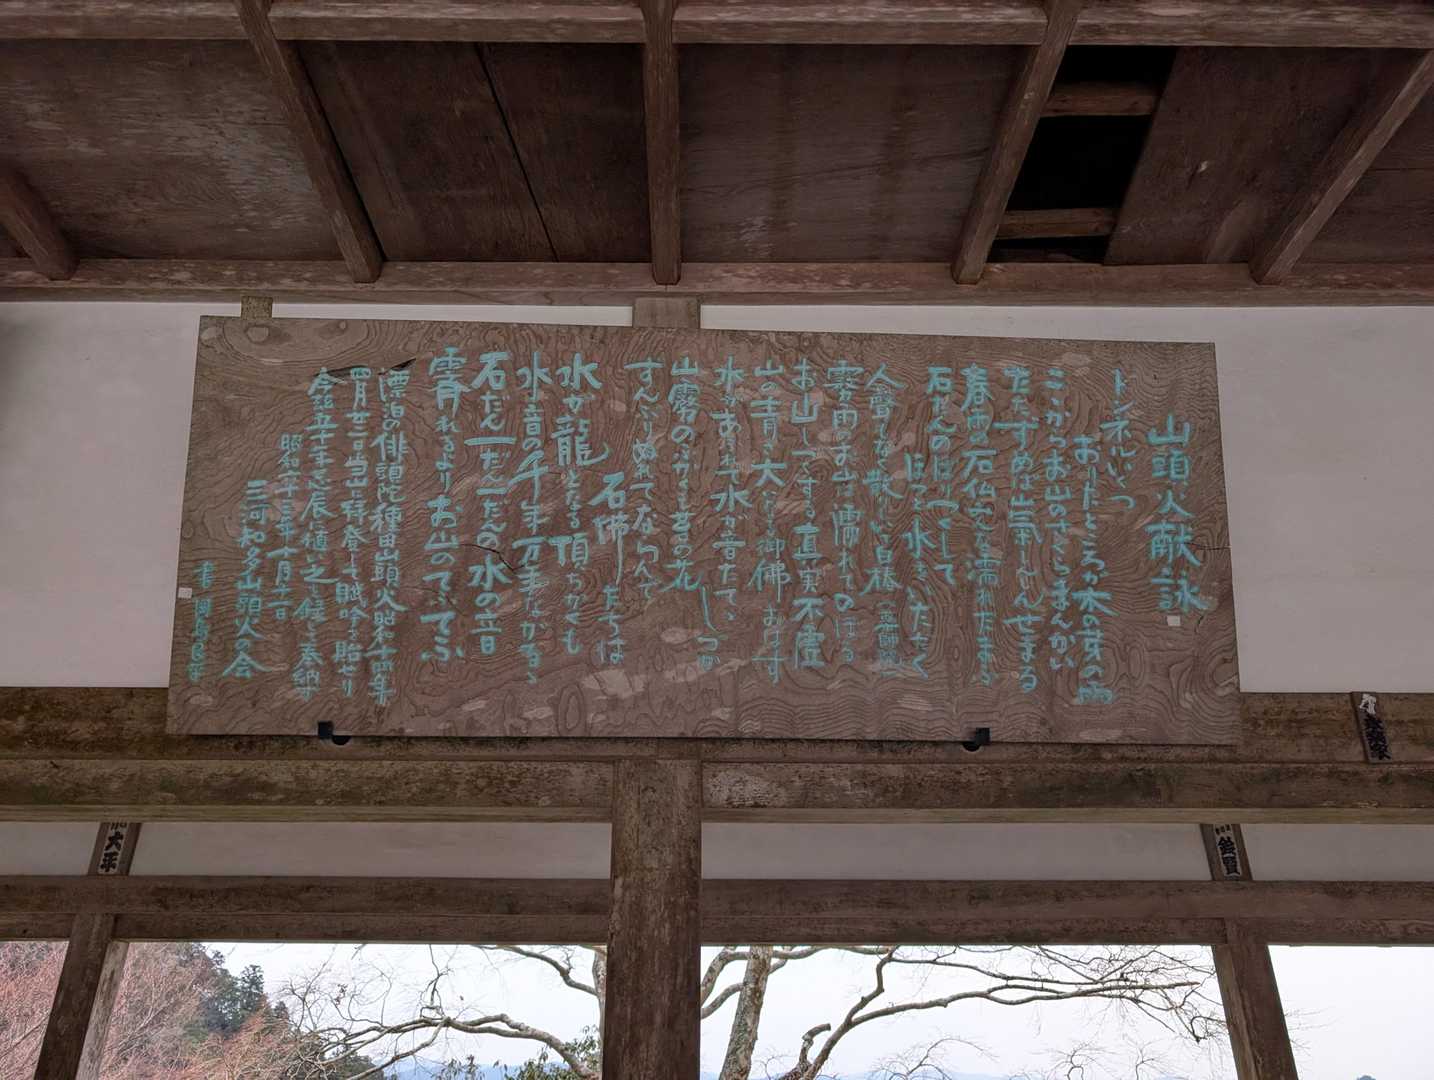 山頭火献詠
トンネルいくつ
おりたところが木の芽の雨
ここからお山のさくらまんかい
たたずめば山気しんしんせまる
春雨の石仏みんな濡れたまふ
石だんのぼりつくして
ほつと水をいただく
人聲もなく散りしい白椿
霧雨のお山は濡れてのぼる
お山しづする真実不虚
山の青さ大いなる御佛おはす
水があふれて水が音たてて
しづか
山霧のふかく蕾の花
ずんぶりぬれてならんで
石佛たちは
水が龍となる頂ちかくも
水音の千年万年ながるる
石だん一だん一だんの水の音
霽れるよりお山のてふてふ
漂泊の俳頭陀種田山頭火昭和十四年
四月廿一日当山に拝登して賦吟を貽せり
昭和五十三年十月十一日
三河知多山頭火の会
書
大平